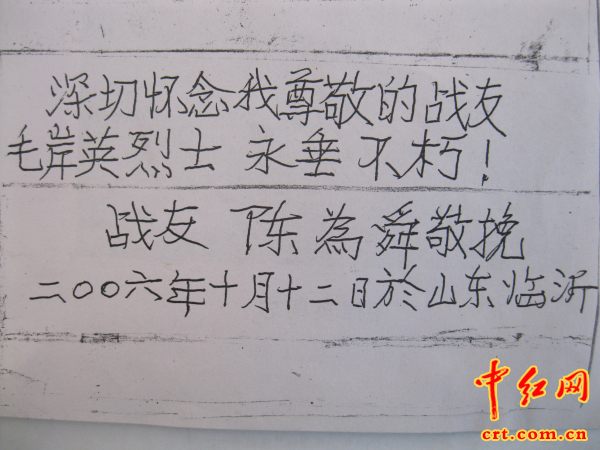 深切怀念我尊敬的战友
毛岸英烈士 永垂不朽!
战友 陈為舜敬挽
二〇〇六年十月十二日於山东临沂
中红网
crt.com.cn